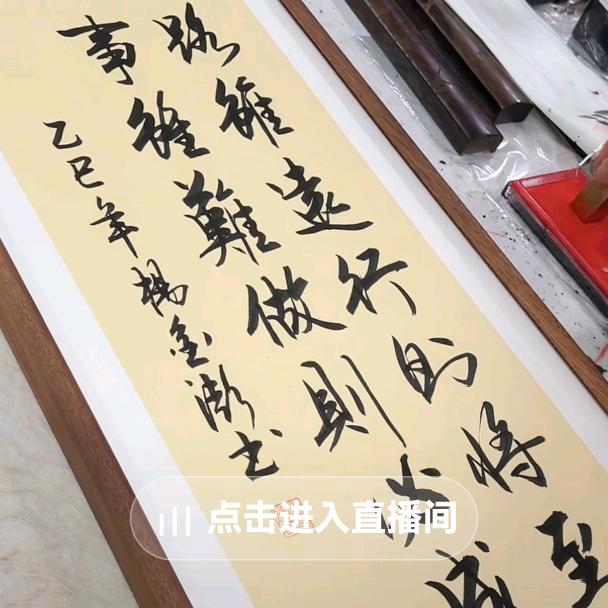 路雖遠行则将至
事雖難做則必成
乙巳年楊金书
点击进入直播间